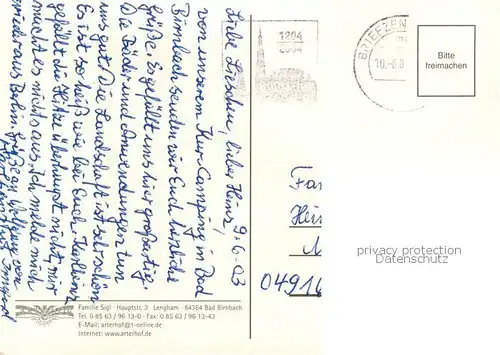 9.6.03
Liebe Lieschen, lieber Heinz,
von unserem Kur-Camping in Bad
Birnbach senden wir Euch herzliche
Grüße. Es gefällt uns hier großartig.
Die Bäder und Anwendungen tun
uns gut. Die Landschaft ist sehr schön
Es ist so heiß wie bei Euch. Karlheinz
gefällt die Hitze überhaupt nicht, mir
macht es nichts aus. Ich melde mich
wieder aus Grüße an Wolfgang von
Karlheinz u. Irmgard
1204
2004
BRIEFZEN
10.-6.0
Bitte
freimachen
Fam
Hein
04916
privacy protection
ansichtskartenpool.de
Familie Sigl · Hauptstr. 3 Lengham · 84364 Bad Birnbach
Tel. 0 85 63 / 96 13-0 · Fax: 0 85 63 / 96 13-43
E-Mail: arterhof@t-online.de
Internet: www.arterhof.de